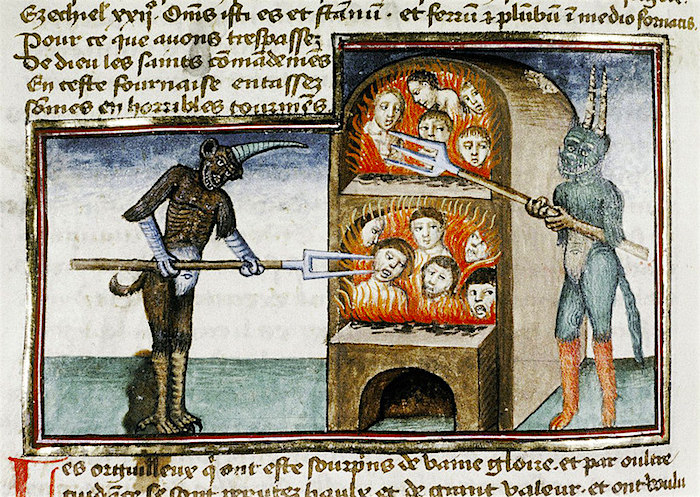 Ezechiel xxii°. Om̄s isti es et stanū. et ferrū ⁊ plūbū ī medio fornacis.
Pour ce que auons trespassez
De dieu les saints cōmādemēs
En ceste fournaise entassez
Sōmes en horribles tourmēs
Les orguilleux q̄ ont este sourpris de vaine gloire. et par oultre
cuidāce se sont reputez haulx et de grant valeur. et ont voulu